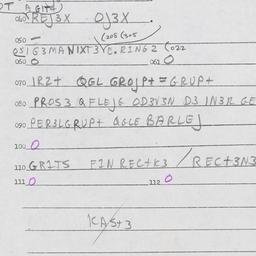 OT A GIT=)
040 REJ3X OJ3X .
050 — (205 (305
051 G3MANIXT3 VE.RING2 (022
060 0 061 0
070 IR2+ QGL GROJP+=GRUP+
080 PROS3 QFLEJG OD3V3N D3 IN3R GE
090 PER3LGRUP+ QGLE BARLEJ
100 0
110 GRITS FIN REC+K3 / REC+3N3
111 0 112 0
KAS+3